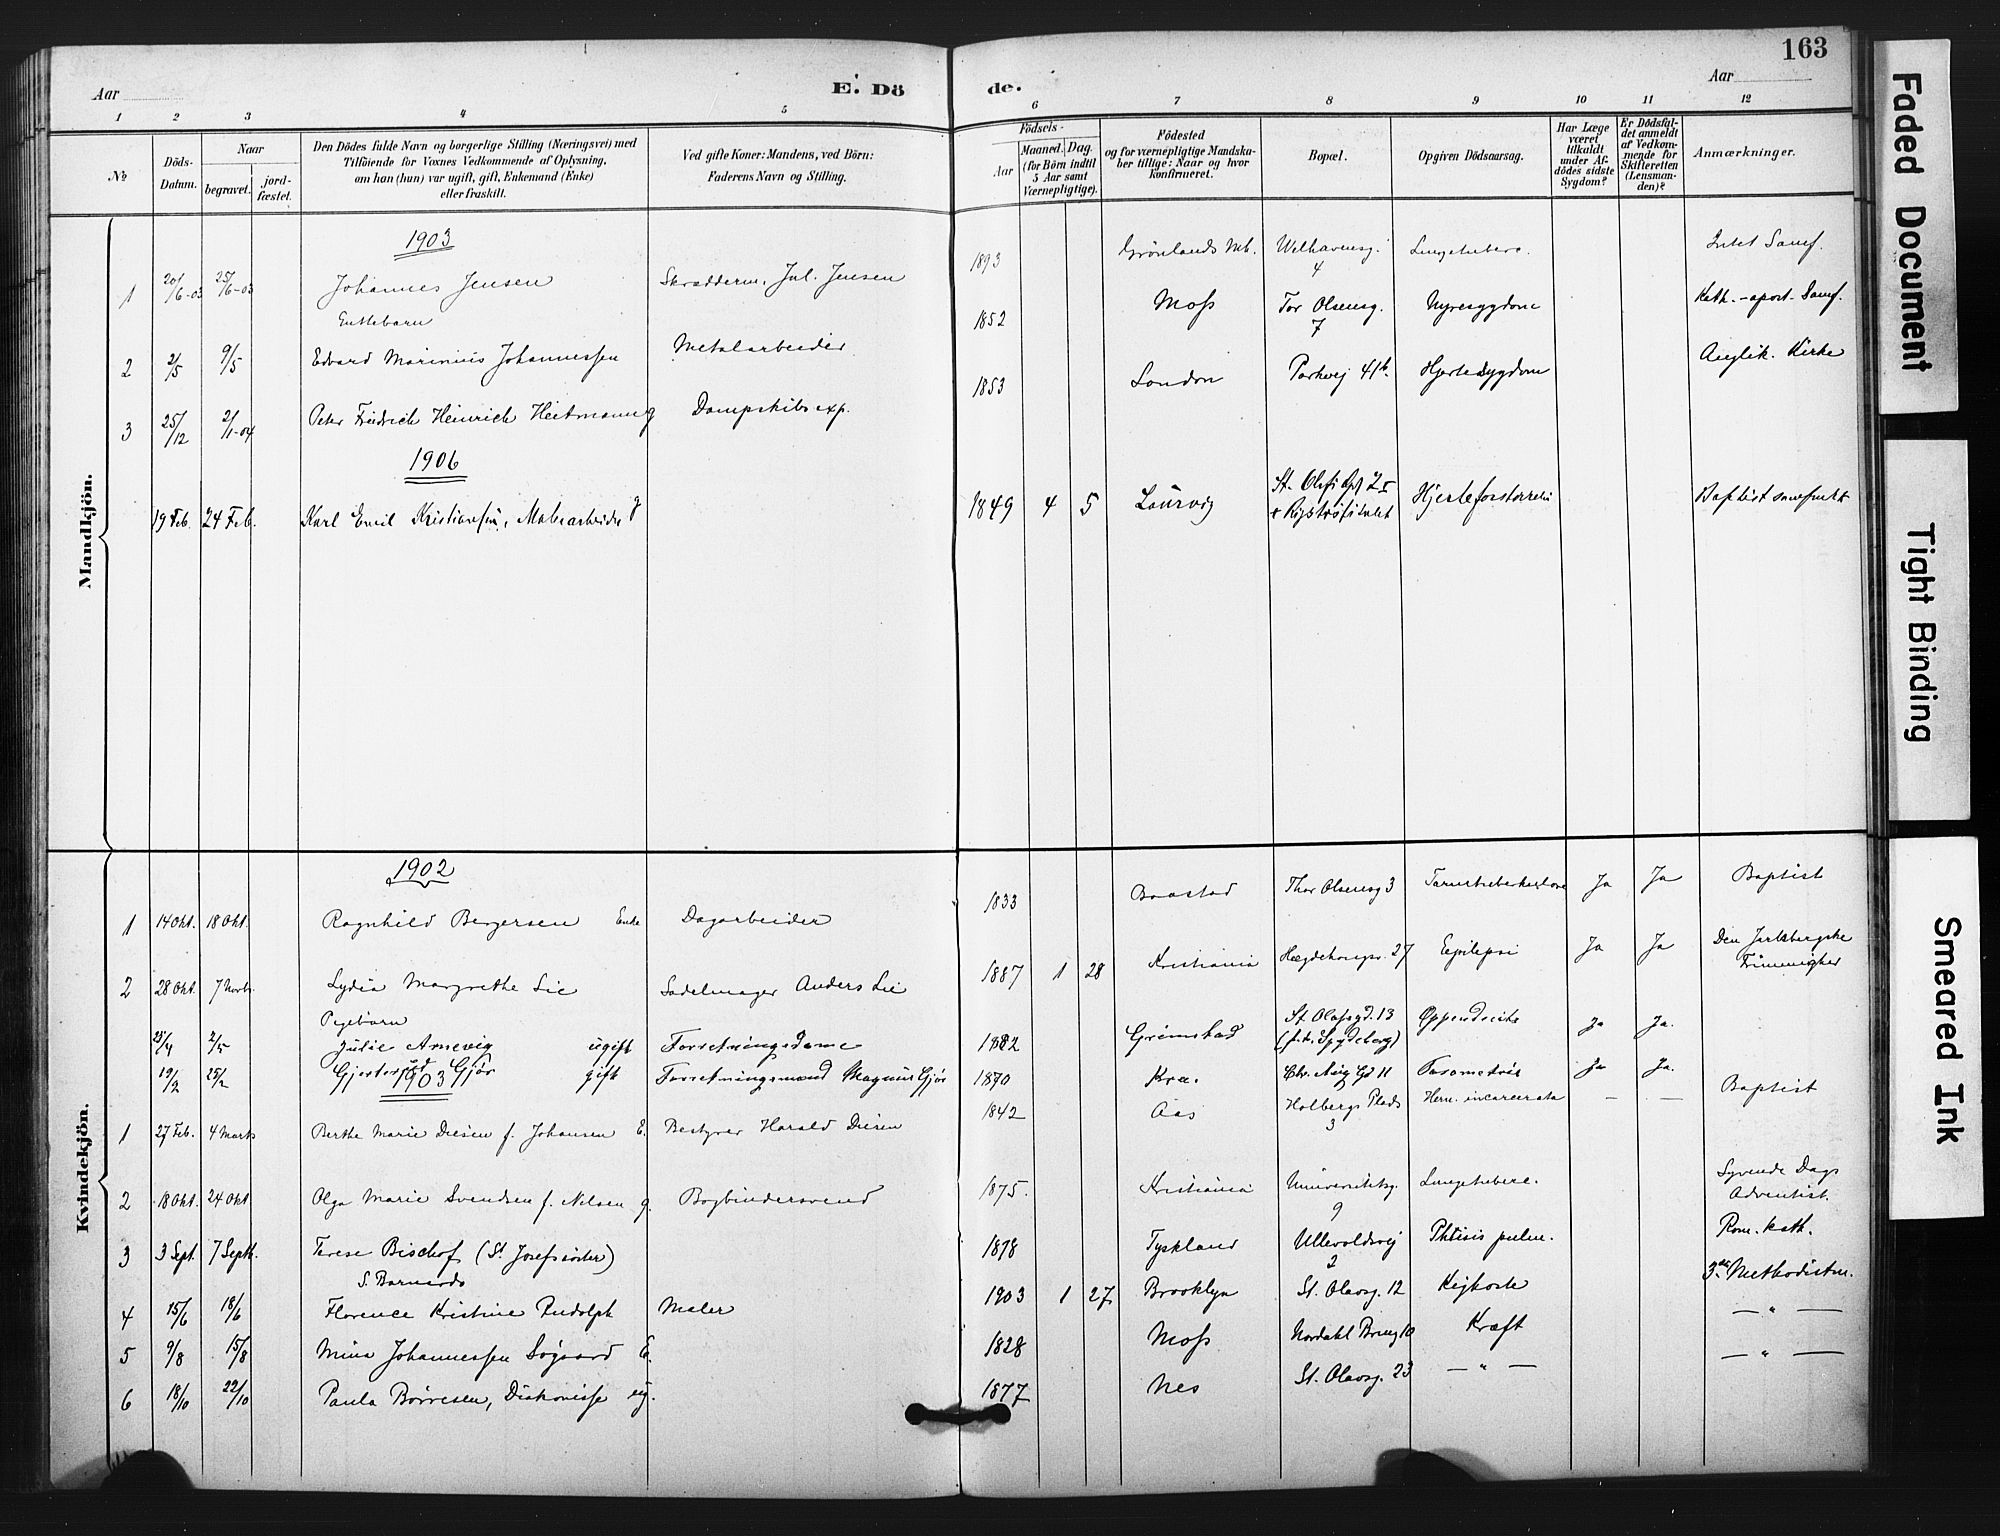 163
Aar
E. Dö
de.
Aar
1 2 3 4 5 6 7 8 9 10 11 12
№
Döds-Datum.
Naar
begravet.
jordfæstet.
Den Dödes fulde Navn og borgerlige Stilling (Næringsvei) med
Tilföiende for Voxnes Vedkommende af Oplysning,
om han (hun) var ugift, gift, Enkemand (Enke)
eller fraskilt.
Ved gifte Koner: Mandens, ved Börn:
Faderens Navn og Stilling.
Födsels-
Aar
Maaned. Dag.
(for Börn indtil
5 Aar samt
Værnepligtige).
Födested
og for værnepligtige Mandskaber tillige: Naar og hvor
konfirmeret.
Bopæl.
Opgiven Dödsaarsag.
Har Læge
været
tilkaldt
under Afdödes sidste
Sygdom?
Er Dödsfaldet anmeldt
af Vedkommende for
Skifteretten
(Lensmanden)?
Anmærkninger.
Mandkjön.
1903
1 20/6-03 25/6-03 Johannes Jensen Skrædderm. Jul. Jensen 1893 Grønlands Mb. Welhavensg. 4 Lungetuberc. Intet Samf.
Enkebarn
2 2/5 9/5 Edvard Marinius Johannessen Metalarbeider 1852 Moss Tor Olsensg. 7 Nyresygdom Kath.-apost. Samf.
3 25/12 2/1-04 Peter Fredrich Heinrich Heitmann g Dampskibsexp. 1853 London Parkvej 41b. Hjertesygdom Anglik. Kirke
1906
19 Feb. 24 Feb. Karl Emil Kristiansen, Malerarbeider g 1849 4 5 Laurvig St. Olafs 2 Rigshospitalet Hjerteforstørrelse Baptist samfundet
Kvindekjön.
1902
1 14 Okt. 18 Okt. Ragnhild Bergersen Enke Dagarbeider 1833 Baastad Thor Olsensg 3 Tarmtuberkulose Ja Ja Baptist
2 28 Okt. 7 Novb. Lydia Margrethe Lie Sadelmager Anders Lie 1887 1 28 Kristiania Hægdehaugsv. 27 Epilepsi Ja Ja Den Jarlsbergske Frimenighed
Pigebarn
25/4 2/5 Julie Arnevig ugift Forretningsdame 1882 Grimstad St. Olafsgd. 13 (f.t. Spydeberg) Appendicit Ja Ja.
19/2 25/2 Gjertrud Gjør gift Forretningsmand Magnus Gjør 1870 Kra. Chr. Aug Gd 11 Parametrit Ja Ja.
1903
1 27 Feb. 4 Marts Berthe Marie Diesen f. Johansen E. Bestyrer Harald Diesen 1842 Aas Holbergs Plads 3 Hern. incarcerata — — Baptist
2 18 Okt. 24 Okt. Olga Marie Svendsen f. Nilsen g. Bogbindersvend 1875. Kristiania Universitetsg. 9 Lungetuberc. Syvende Dags Adventist.
3 3 Sept. 7 Septb. Terese Bischof (St. Josefssøster) 1878 Tyskland Ullevoldsvej 2 Phtisis pulm. Rom. kath.
S. Barnarda
4 15/6 18/6 Florence Kristine Rudolph Maler 1903 1 27 Brooklyn St. Olavsg. 12 Kighoste 3die Methodistm.
5 9/8 15/8 Mina Johannessen Søgaard E. 1828 Moss Nordahl Brunsg 10 Kræft — " —
6 18/10 22/10 Paula Børresen, Diakonisse ug. 1877 Nes St. Olavsg. 23 — " — — " —
Faded Document
Tight Binding
Smeared Ink